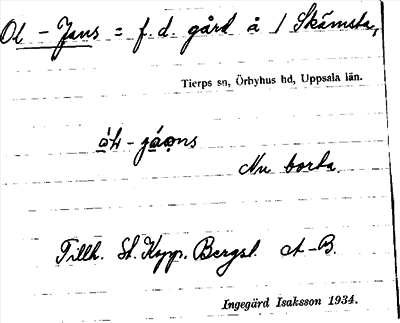 Ol - Jans = f. d. gård å / Skämsta,
Tierps sn, Örbyhus hd, Uppsala län.
Nu borta.
Tillh. St. Kopp. Bergsl. A-B.
Ingegärd Isaksson 1934.